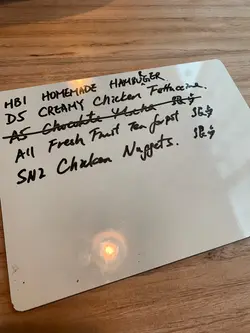 HB1 HOMEMADE HAMBURGER
D5 CREAMY Chicken Fettuccine.
A5 Chocolate
A11 Fresh Fruit Tea
SN2 Chicken Nuggets.